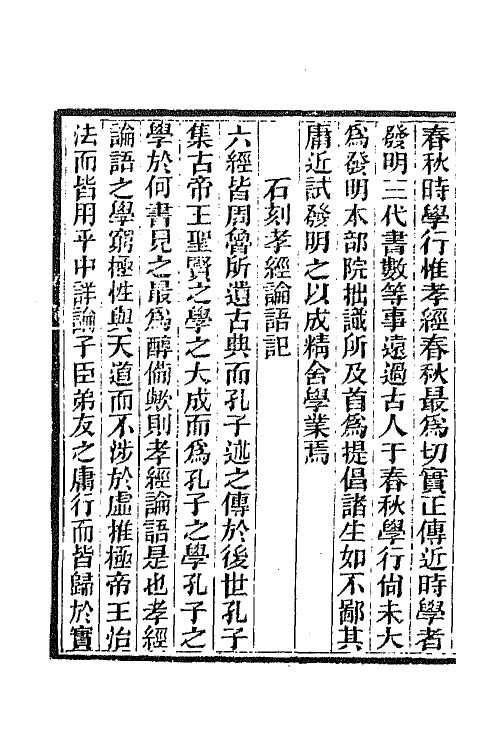 春秋時學行惟孝經春秋最爲切實正傳近時學者
發明三代書數等事遠過古人于春秋學行尙未大
爲發明本部院拙識所及首爲提倡諸生如不鄙其
庸近試發明之以成精舍學業焉
石刻孝經論語記
六經皆周魯所遺古典而孔子述之傳於後世孔子
集古帝王聖賢之學之大成而爲孔子之學孔子之
學於何書見之最爲醇備歟則孝經論語是也孝經
論語之學窮極性與天道而不涉於虛推極帝王治
法而皆用乎中詳論子臣弟友之庸行而皆歸於實